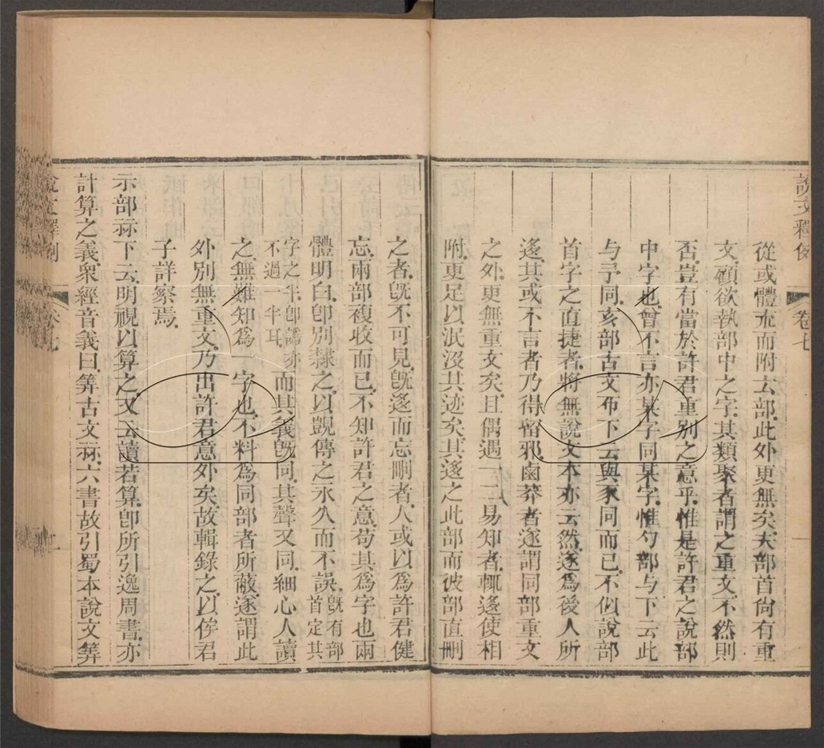 說文釋例 卷七
從或體㐬而附𠫓部此外更無矣大部首尙有重
文顧欲執部中之字其類聚者謂之重文不然則
否豈有當於許君重別之意乎惟是許君之說部
中字也曾不言亦某字同某字惟勺部与下云此
与予同亥部古文𠀬下云與豕同而已不似說部
首字之直捷者將無說文本亦云然遂爲後人所
遂其或不言者乃得甯邪鹵莽者遂謂同部重文
之外更無重文矣且偶遇一二易知者輒遂使相
附更足以泯沒其迹矣其遂之此部而彼部直刪
之者旣不可見旣遂而忘刪者人或以爲許君健
忘兩部複收而已不知許君之意苟其爲字也兩
體明白卽別隸之以覬傳之永久而不誤旣有部首定其
字之半卽譌亦不過一半耳而其義旣同其聲又同細心人讀
之無難知爲一字也不料爲同部者所蔽遂謂此
外別無重文乃出許君意外矣故輯錄之以俟君
子詳察焉
示部祘下云明視以算之又云讀若算卽所引逸周書亦
計算之義衆經音義曰筭古文祘六書故引蜀本說文筭